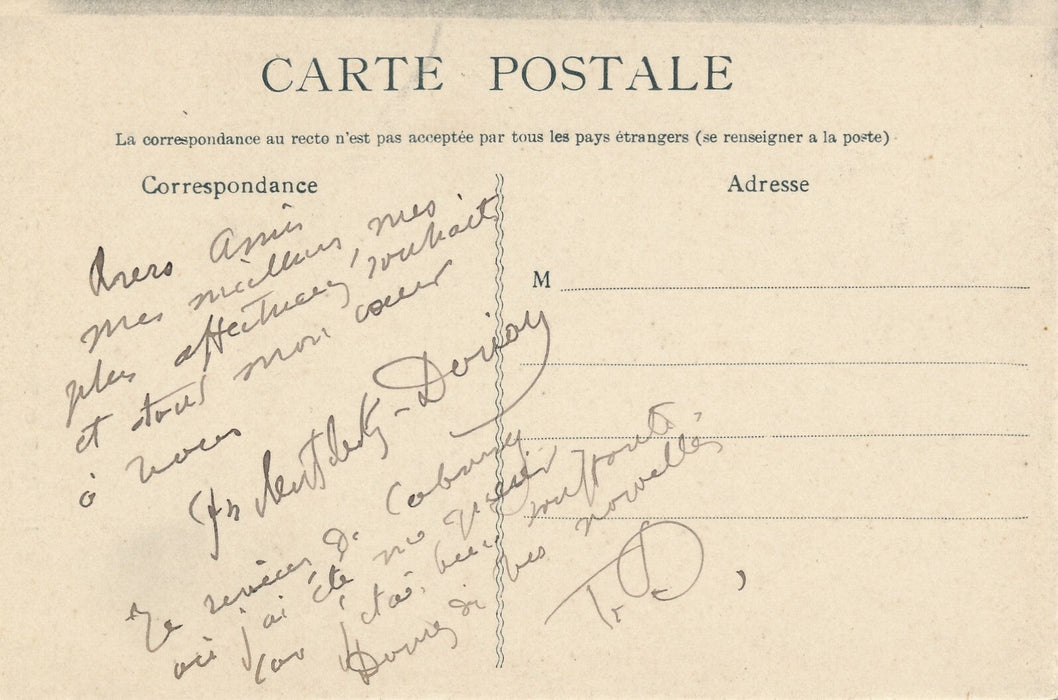 CARTE POSTALE
La correspondance au recto n'est pas acceptée par tous les pays étrangers (se renseigner a la poste)
Correspondance
Adresse
M
Amis
mes meilleurs, mes
plus affectueux souhaits
et tout mon cœur
à vous
Je reviens de Cabourg
où j'ai été me
car j'étais bien souffrante
Donnez de vos nouvelles